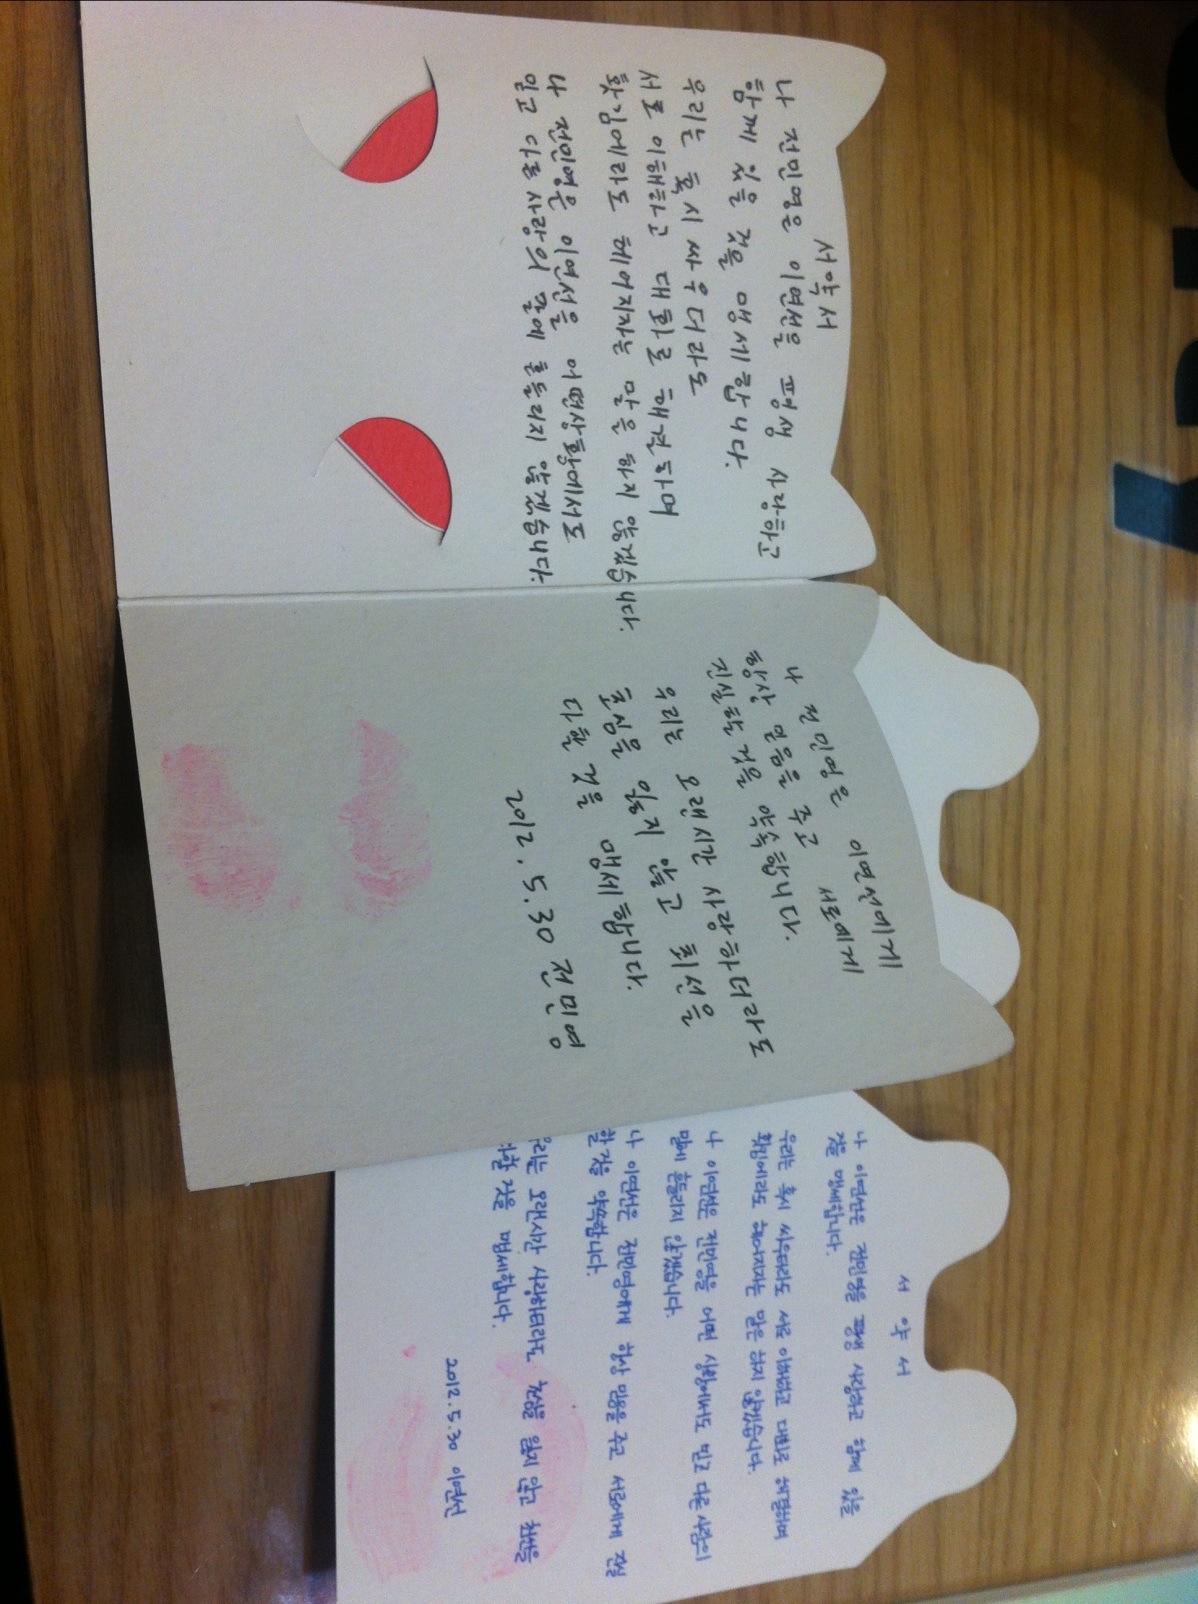 서약서
나 전민영은 이연선을 평생 사랑하고
함께 있을 것을 맹세합니다.
우리는 혹시 싸우더라도
서로 이해하고 대화로 해결하며
홧김에라도 헤어지자는 말은 하지 않겠습니다.
나 전민영은 이연선을 어떤상황에서도
믿고 다른사람의 말에 흔들리지 않겠습니다.
나 전민영은 이연선에게
항상 믿음을 주고 서로에게
진실할 것을 약속합니다.
우리는 오랜시간 사랑하더라도
초심을 잃지 않고 최선을
다할 것을 맹세합니다.
2012. 5. 30 전민영
서 약 서
나 이연선은 전민영을 평생 사랑하고 함께 있을
것을 맹세합니다.
우리는 혹시 싸우더라도 서로 이해하고 대화로 해결하며
홧김에라도 헤어지자는 말은 하지 않겠습니다.
나 이연선은 전민영을 어떤 상황에서도 믿고 다른 사람의
말에 흔들리지 않겠습니다.
나 이연선은 전민영에게 항상 믿음을 주고 서로에게 진실
할 것을 약속합니다.
우리는 오랜시간 사랑하더라도 초심을 잃지 않고 최선을
다할 것을 맹세합니다.
2012. 5. 30 이연선